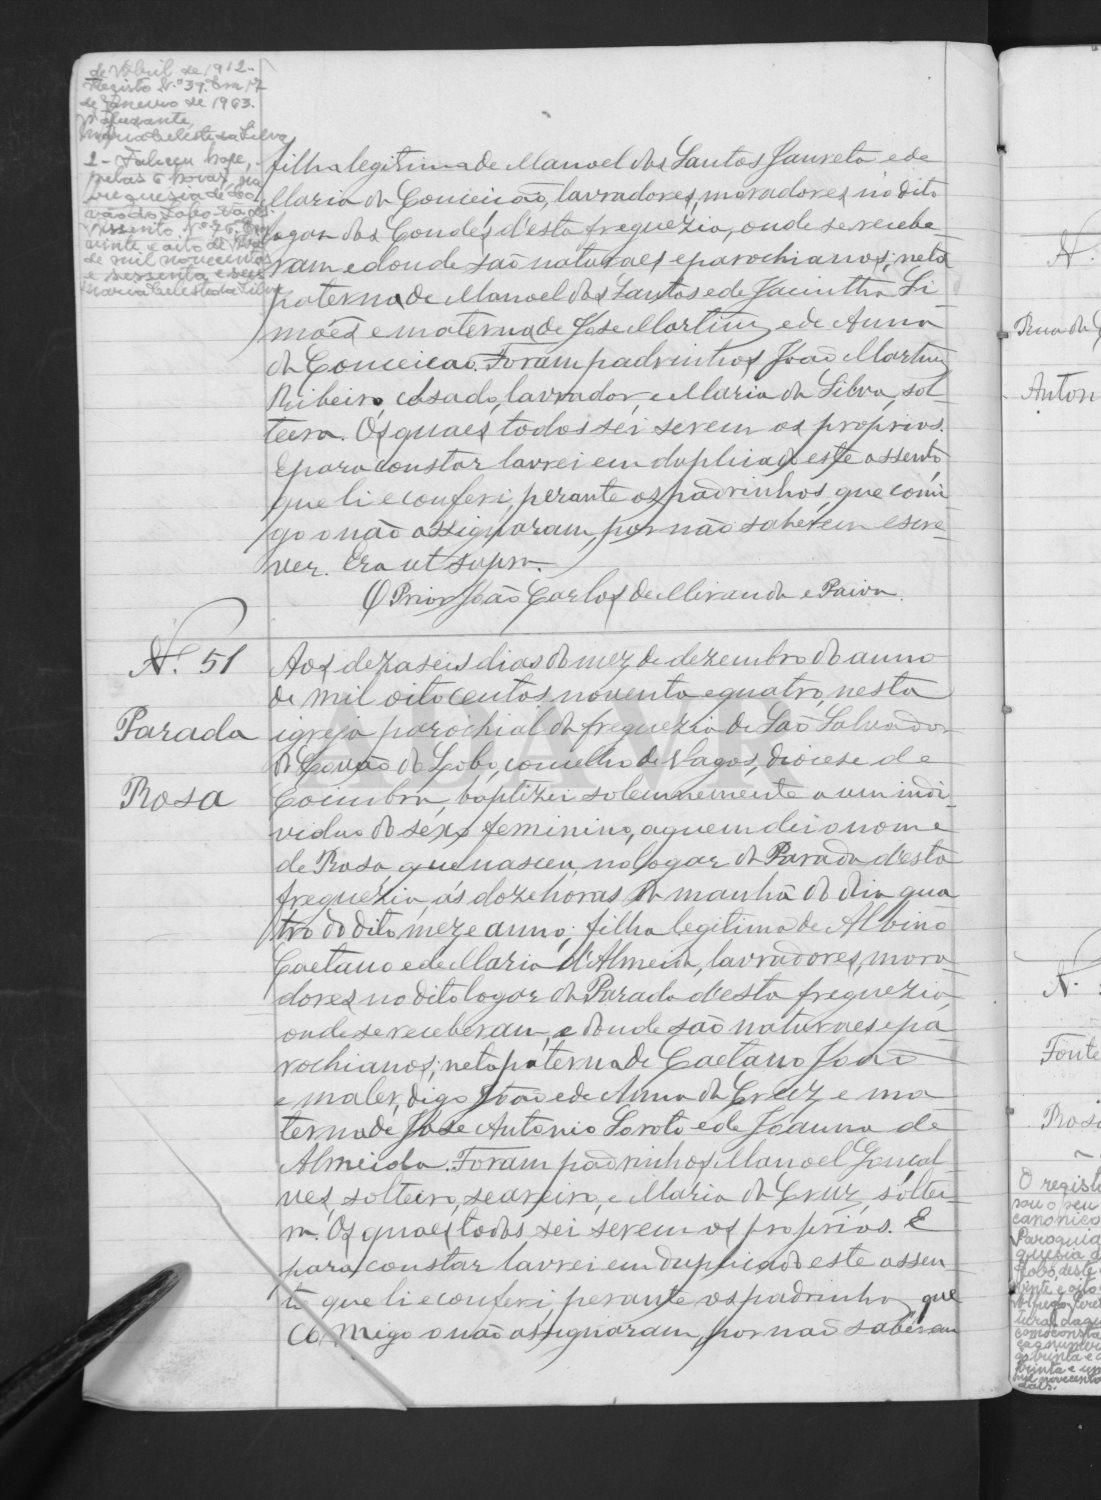 de Abril de 1912.
Registo N.º 39. Em 17
de Janeiro de 1963.
Ajudante,
Maria Celeste da Silva
2 - Faleceu hoje,
pelas 6 horas, na
freguesia de Co-
vão do Lobo - Vagos.
Assento N.º 76. Em
vinte e oito de
de mil novecentos
e sessenta e seis
Maria Celeste da Silva
filha legitima de Manoel dos Santos Jaureto e de
Maria da Conceicão, lavradores, moradores no dito
logar dos Condes d'esta freguezia, onde se recebe-
ram e donde são naturaes e parochianos; neta
paterna de Manoel dos Santos e de Jacintha Si-
mões e materna de José Martins e de Anna
da Conceicao. Foram padrinhos João Martins
Ribeiro, casado, lavrador, e Maria da Silva, sol-
teira. Os quaes todos sei serem os proprios.
E para constar lavrei em duplicado este assento,
que li e conferi, perante os padrinhos, que comi
go o não assignaram, por não saberem escre-
ver. Era ut supra.
O Prior João Carlos de Miranda e Paiva.
N.º 51
Parada
Rosa
Aos dezaseis dias do mez de dezembro do anno
de mil oitocentos noventa e quatro, nesta
igreja parochial da freguezia de São Salvador
do Covão do Lobo, concelho de Vagos, diocese de
Coimbra, baptizei solemnemente a um indi-
viduo do sexo feminino, a quem dei o nome
de Rosa, que nasceu, no logar da Parada d'esta
freguezia, ás doze horas da manhã do dia qua
tro do dito mez e anno; filha legitima de Albino
Caetano e de Maria d'Almeida, lavradores, mora-
dores no dito logar da Parada d'esta freguezia,
onde se receberam, e donde são naturaes e pa-
rochianos; neta paterna de Caetano João
e mater, digo João e de Anna da Cruz e ma
terna de José Antonio Loroto e de Joanna de
Almeida. Foram padrinhos Manoel Goncal-
ves, solteiro, seareiro, e Maria da Cruz, soltei-
ra. Os quaes todos sei serem os proprios. E
para constar lavrei em duplicado este assen
to que li e conferi, perante os padrinhos, que
comigo o não assignaram, por não saberem
ADAVR
N.
Rua da
Anton
N.
Fonte
Rosa
O regist
sou o seu
canonico
Paroquia
guesia d
Lobo, deste
vinte e oito